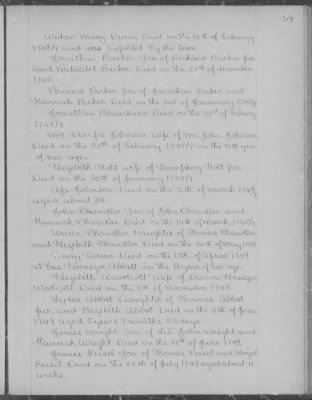 319
Widow Mary Dunin Died on the 14th of February
1748/9 and was Suported by the town
Jonathan Parker Son of Richard Parker jur.
and Mehitibel Parker Died on the 25th of december
1748.
Phineas Parker Son of Jonathan Parker and
Hannah Parker Died on the 3rd of January 1748/9
Jonathan Blanchard Died on the 25th of February
1748/9.
Mrs Johnson wife of Mr John Johnson
Died on the 25th of February 1748/9 in the year
of her age.
Elizabeth Holt wife of Humphry Holt jur.
Died on the 30th of January 1748/9
Johnson Died on the 2th of March 1748/9
aged about 33.
John Chandler Son of John Chandler and
Hannah Chandler Died on the 18th of March 1748/9
Unice Chandler Daughter of Thomas Chandler
and Elizabeth Chandler Died on the 30th of May 1749
Mary Turner Died on the 17th of April 1749
at Ens. Ebenezer Abbott in the year of her age.
Elizabeth Woodcutt Wife of Ebenezer
Woodcutt Died on the 2th of November 1748
Lydia Abbot Daughter of Thomas Abbot
jur. and Elizabeth Abbot Died on the 5th of June
1749 aged 5 years 7 months 23 days.
James Wright Son of John Wright and
Hannah Wright Died on the 18th of June 1749.
James Russel Son of Thomas Russel and Abigal
Russel Died on the 23th of July 1749 aged about 11
weeks.